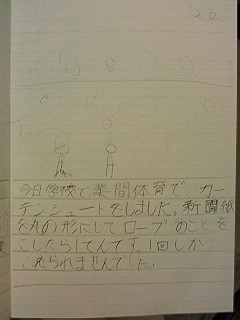 2 12
今日学校で業間体育で カー
テンシュートをしました。新聞紙
をAの形にしてロープのとこを
こしたら1てんです。1回しか
こえられませんでした。